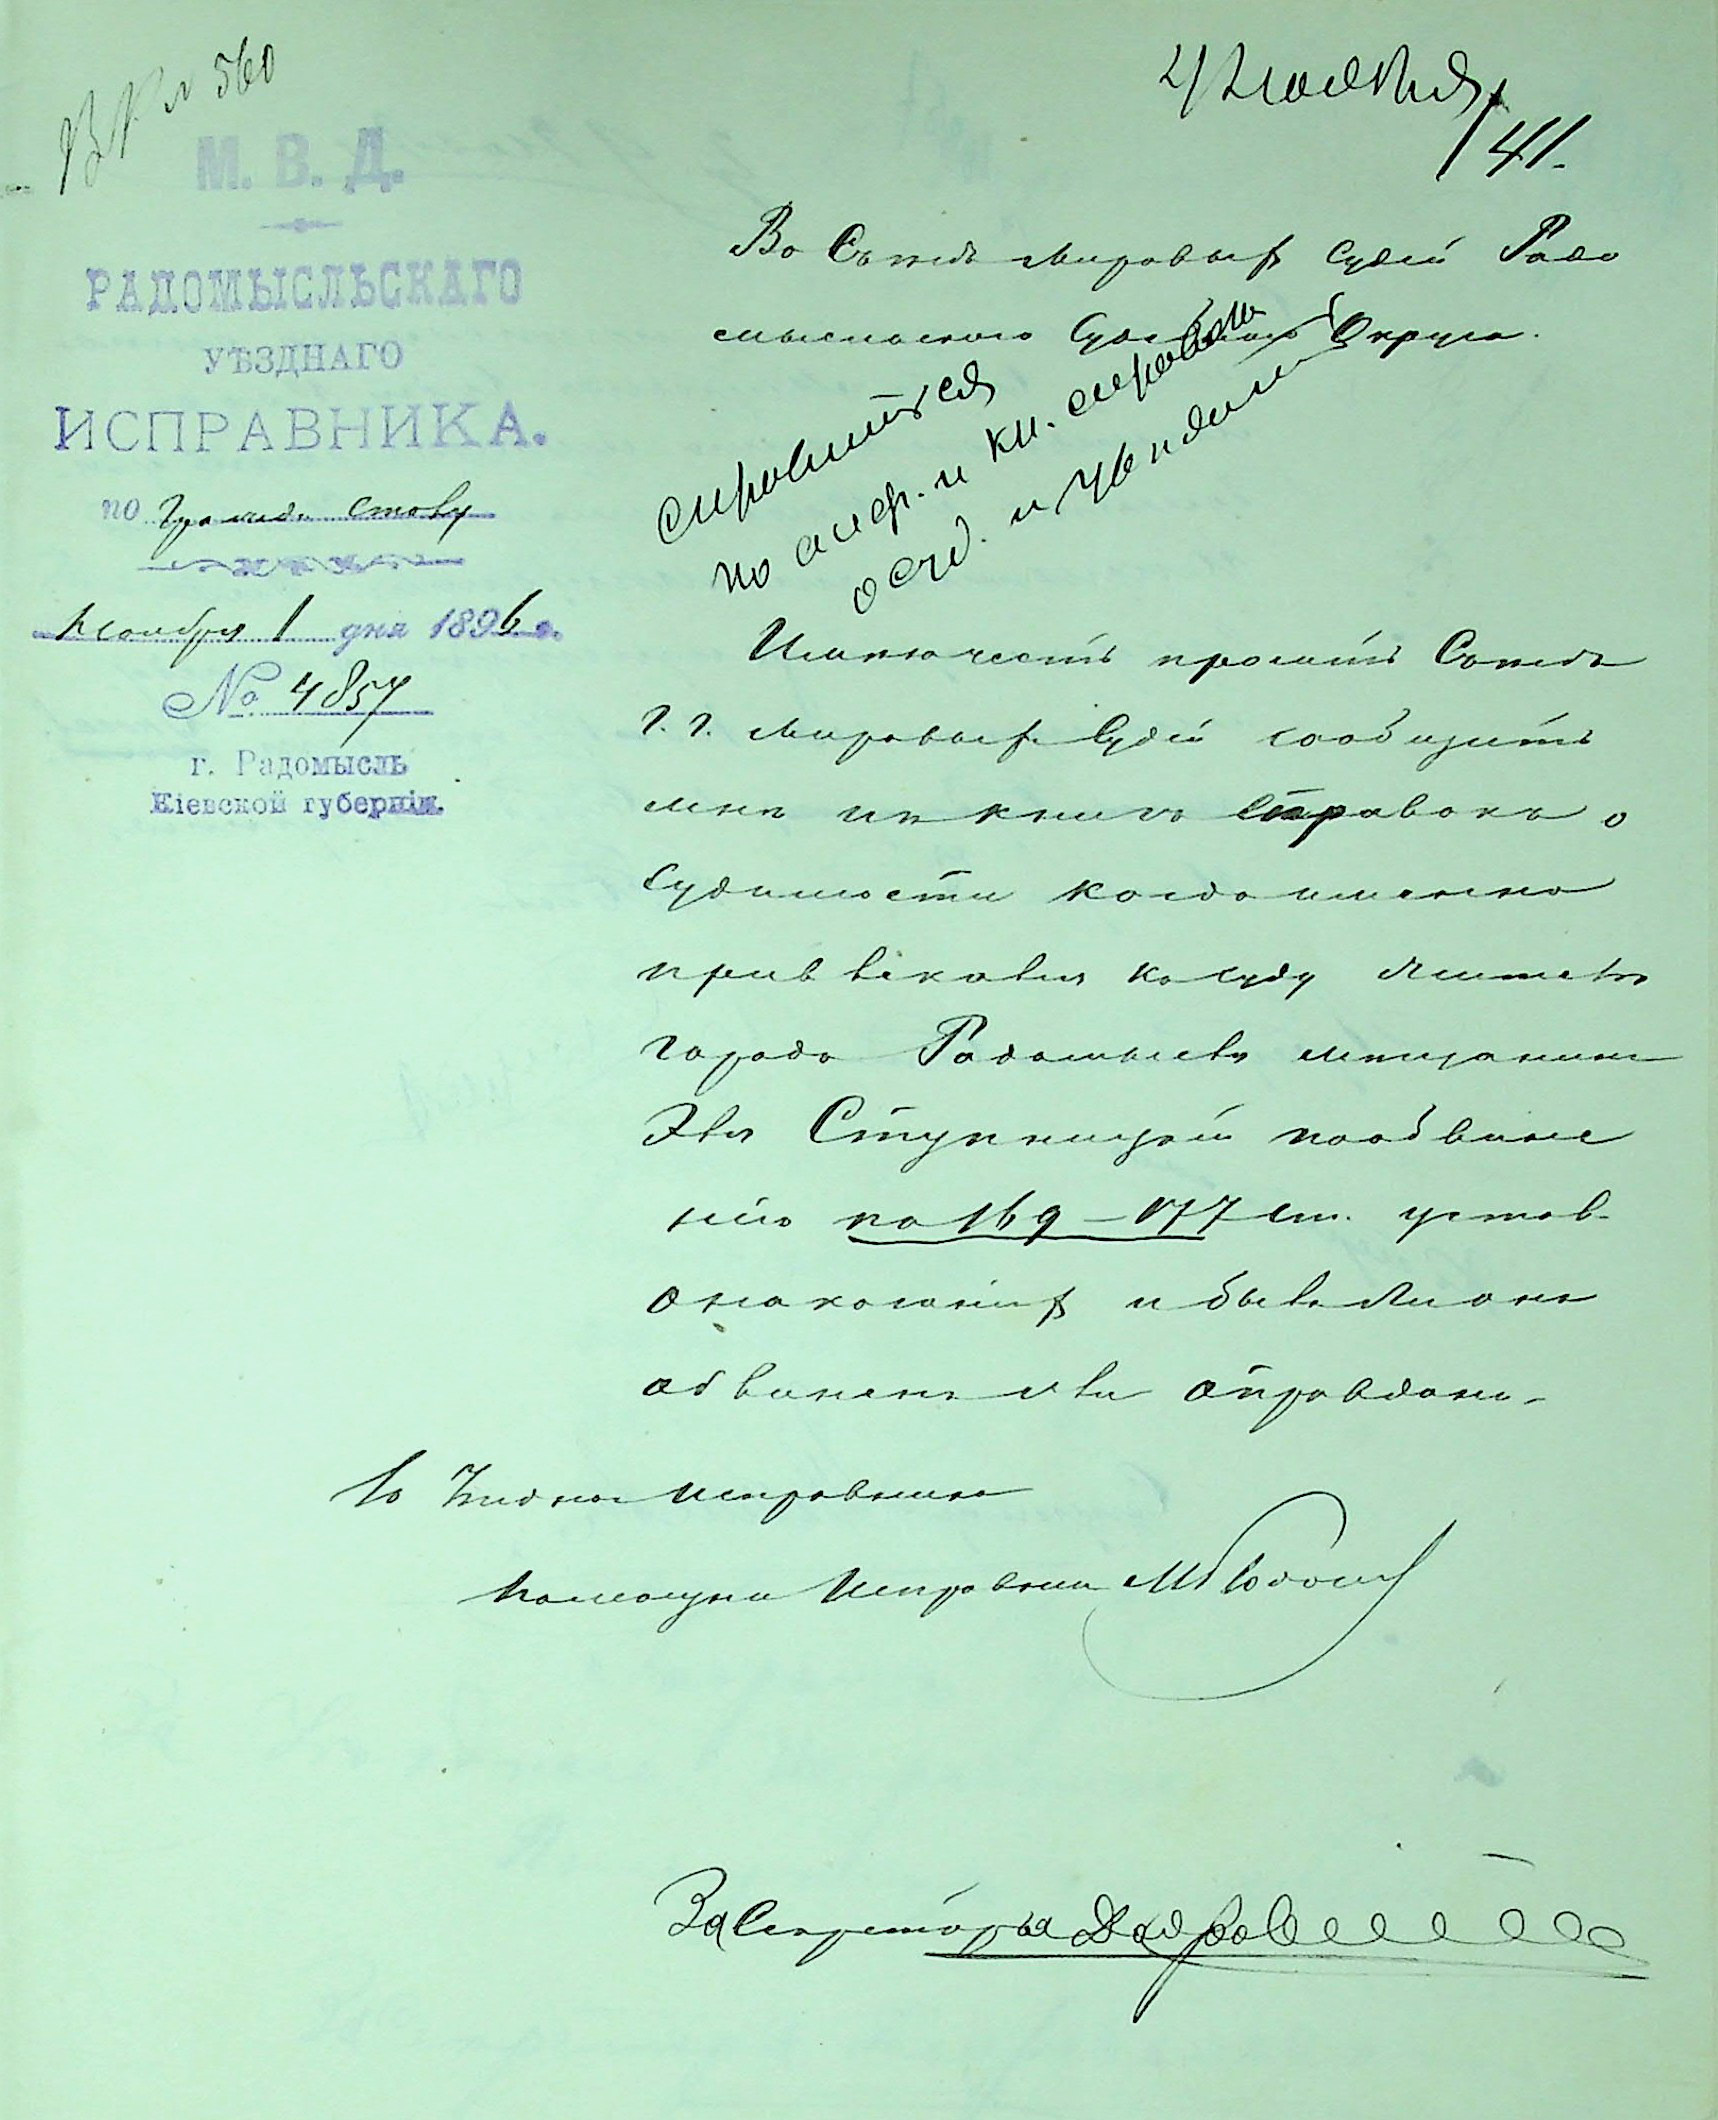 № 560
М. В. Д.
РАДОМЫСЛЬСКАГО
УѢЗДНАГО
ИСПРАВНИКА.
по
Ноября 1 дня 1896 г.
№ 4857
г. Радомысль
Кіевской губерніи.
4 Ноября
41.
Въ Съѣздъ Мировыхъ Судей Радо
мысльскаго Судебнаго Округа.
справиться
по алф. и кн. справокъ
о суд. и увѣдомить
Имѣю честь просить Съѣздъ
г.г. Мировыхъ Судей сообщить
мнѣ изъ книги справокъ о
судимости когда именно
привлекался къ суду житель
города Радомысля мѣщанинъ
Эля Ступницкій по обвине
нію по 169–177 ст. устав.
о наказаніяхъ и былъ ли онъ
обвиненъ или оправданъ.
За Уѣзднаго Исправника
Помощникъ Исправника
За Секретаря